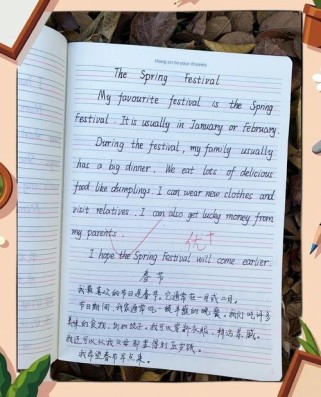 Hang on to your dreams
The Spring Festival
My favourite festival is the Spring
Festival. It is usually in January or February.
During the festival, my family usually
has a big dinner. We eat lots of delicious
food like dumplings. I can wear new clothes and
visit relatives. I can also get lucky money from
my parents.
优+
I hope the Spring Festival will come earlier.
春节
我最喜欢的节日是春节。它通常在一月或二月。
节日期间,我家通常吃一顿丰盛的晚餐。我们吃许多
美味的食物,例如饺子。我可以穿新衣服,拜访亲戚。
我还可以从我父母那里得到压岁钱。
我希望春节早点来。